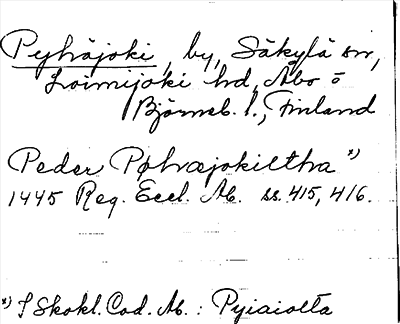 Pyhäjoki, by, Säkylä sn,
Loimijoki hd, Åbo o
Björneb. l., Finland
Peder Pøhræjokiltha *)
1445 Reg. Eccl. Ab. ss. 415, 416.
*) I Skokl. Cod. Ab. : Pyiaiolta